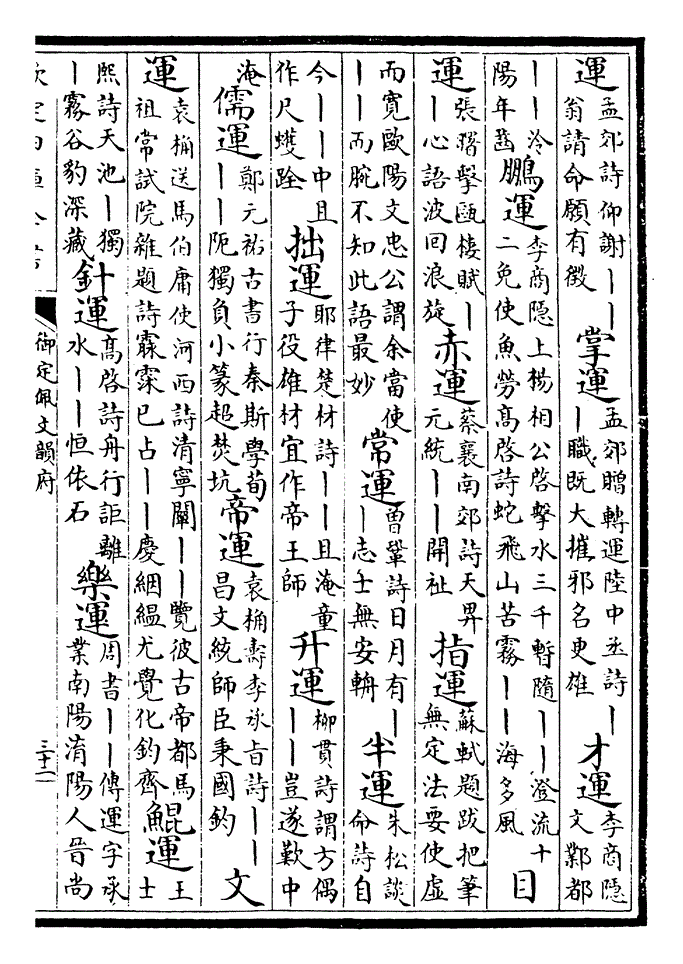 運孟郊詩仰謝丨丨翁請命願有徵掌運孟郊贈轉運陸中丞詩丨丨職既大摧邪名更雄才運李商隱文鄴都
丨丨冷陽年齒鵬運李商隱上楊相公啓擊水三千暫隨丨丨澄流十二免使魚勞高啓詩蛇飛山苦霧丨丨海多風目
運張曙擊甌樓賦丨丨心語波回浪旋赤運蔡襄南郊詩天昇元統丨丨開祉指運蘇軾題跋把筆無定法要使虛
而寬歐陽文忠公謂余當使丨丨而腕不知此語最妙常運曾鞏詩日月有丨丨志士無安輈半運朱松談命詩自
今丨丨中且作尺蠖跧拙運耶律楚材詩丨丨且淹童子役雄材宜作帝王師升運柳貫詩謂方偶丨丨豈遂歎中
淹儒運鄭元祐古書行秦斯學荀丨丨阨獨負小篆超焚坑帝運袁桷壽李承旨詩丨丨昌文統師臣秉國鈞文
運袁桷送馬伯庸使河西詩清寧闡丨丨覽彼古帝都馬祖常試院雜題詩霢霂已占丨丨慶絪縕尤覺化鈞齊鯤運王士
熙詩天池丨獨丨霧谷豹深藏針運高啓詩舟行詎離水丨丨恒依石樂運周書丨丨傳運字承業南陽淯陽人晉尚
欽定四庫全書
御定佩文韻府
三十二